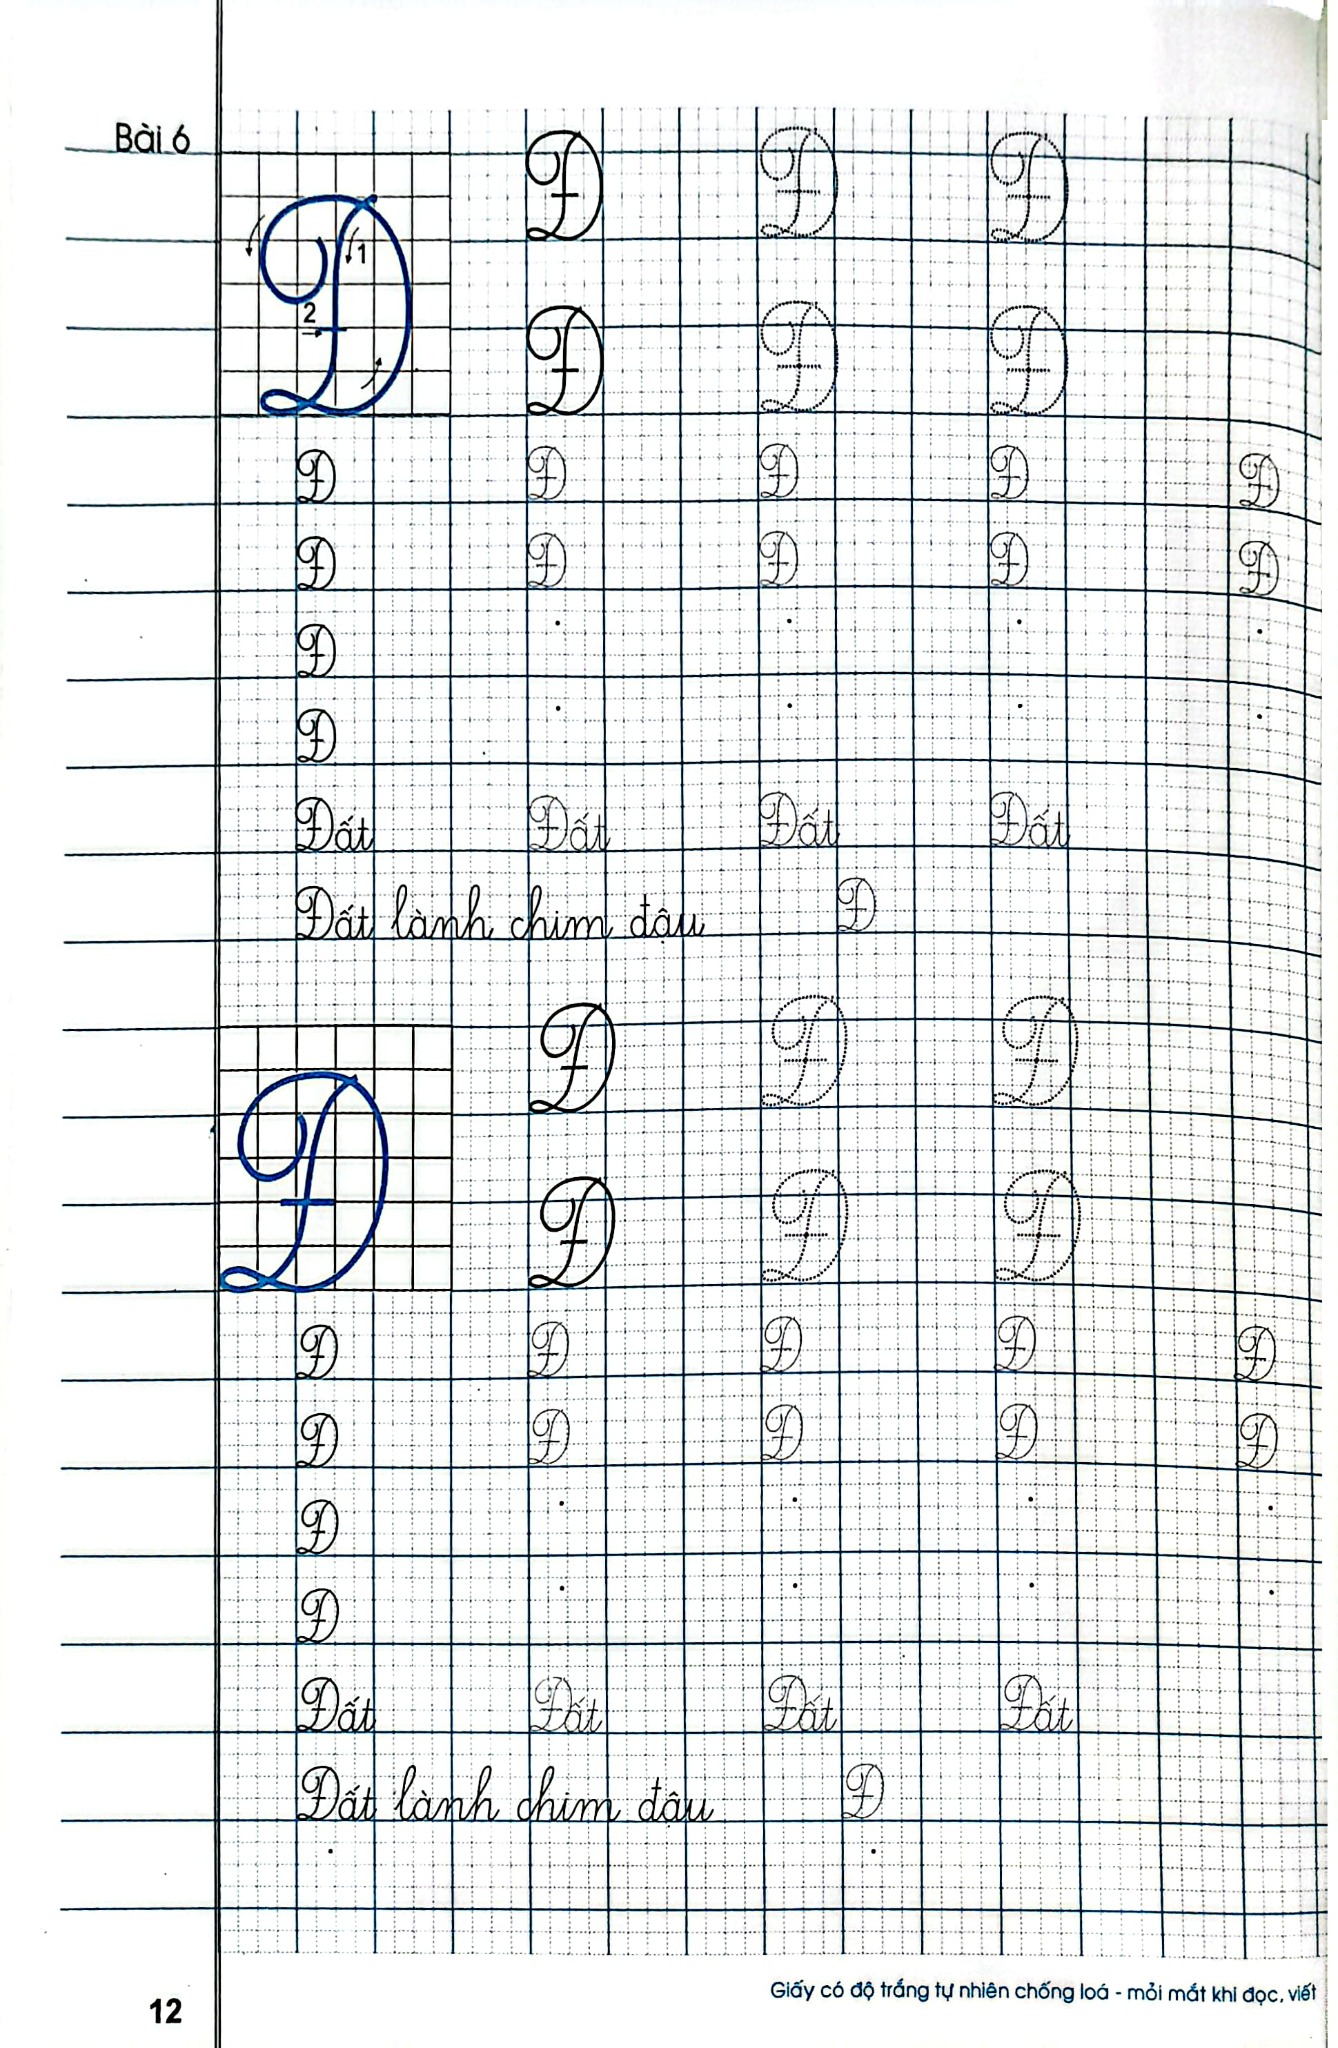 Bài 6
Đ Đ Đ Đ
1
2
Đ Đ Đ
Đ Đ Đ Đ Đ
Đ Đ Đ Đ Đ
Đ
Đ
Đất Đất Đất Đất
Đất lành chim đậu Đ
Đ Đ Đ Đ
Đ Đ Đ
Đ Đ Đ Đ Đ
Đ Đ Đ Đ Đ
Đ
Đ
Đất Đất Đất Đất
Đất lành chim đậu Đ
Giấy có độ trắng tự nhiên chống loá - mỏi mắt khi đọc, viết
12